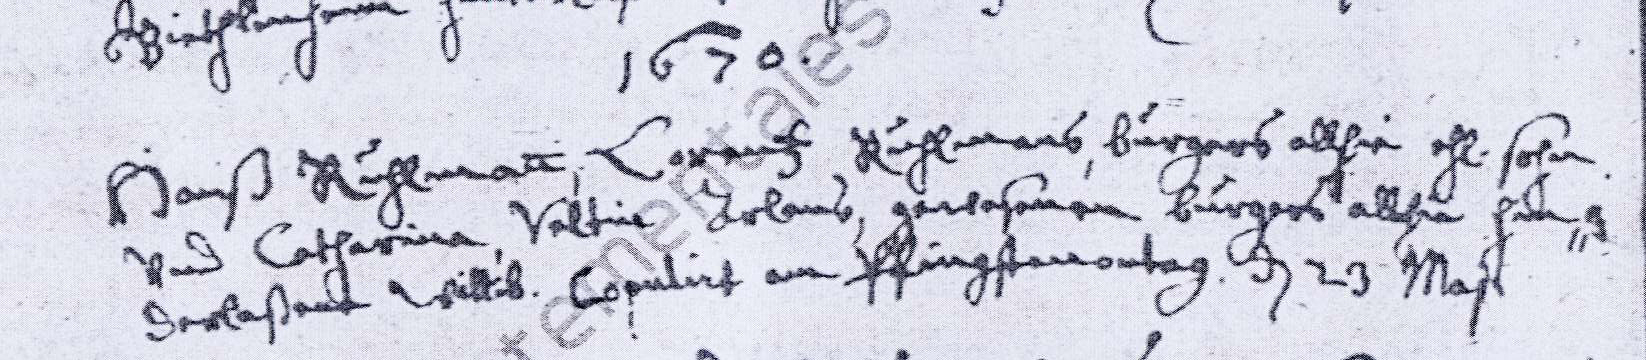 1670.
Hanß Kühlman, Lorentz Kühlmans, burgers allhie ehl. sohn
Vnd Catharina, Veltin Erlans, gewesenen burgers allhie hin„
derlaßene wittib. Copulirt am Pfingstmontag. D 23 Maji